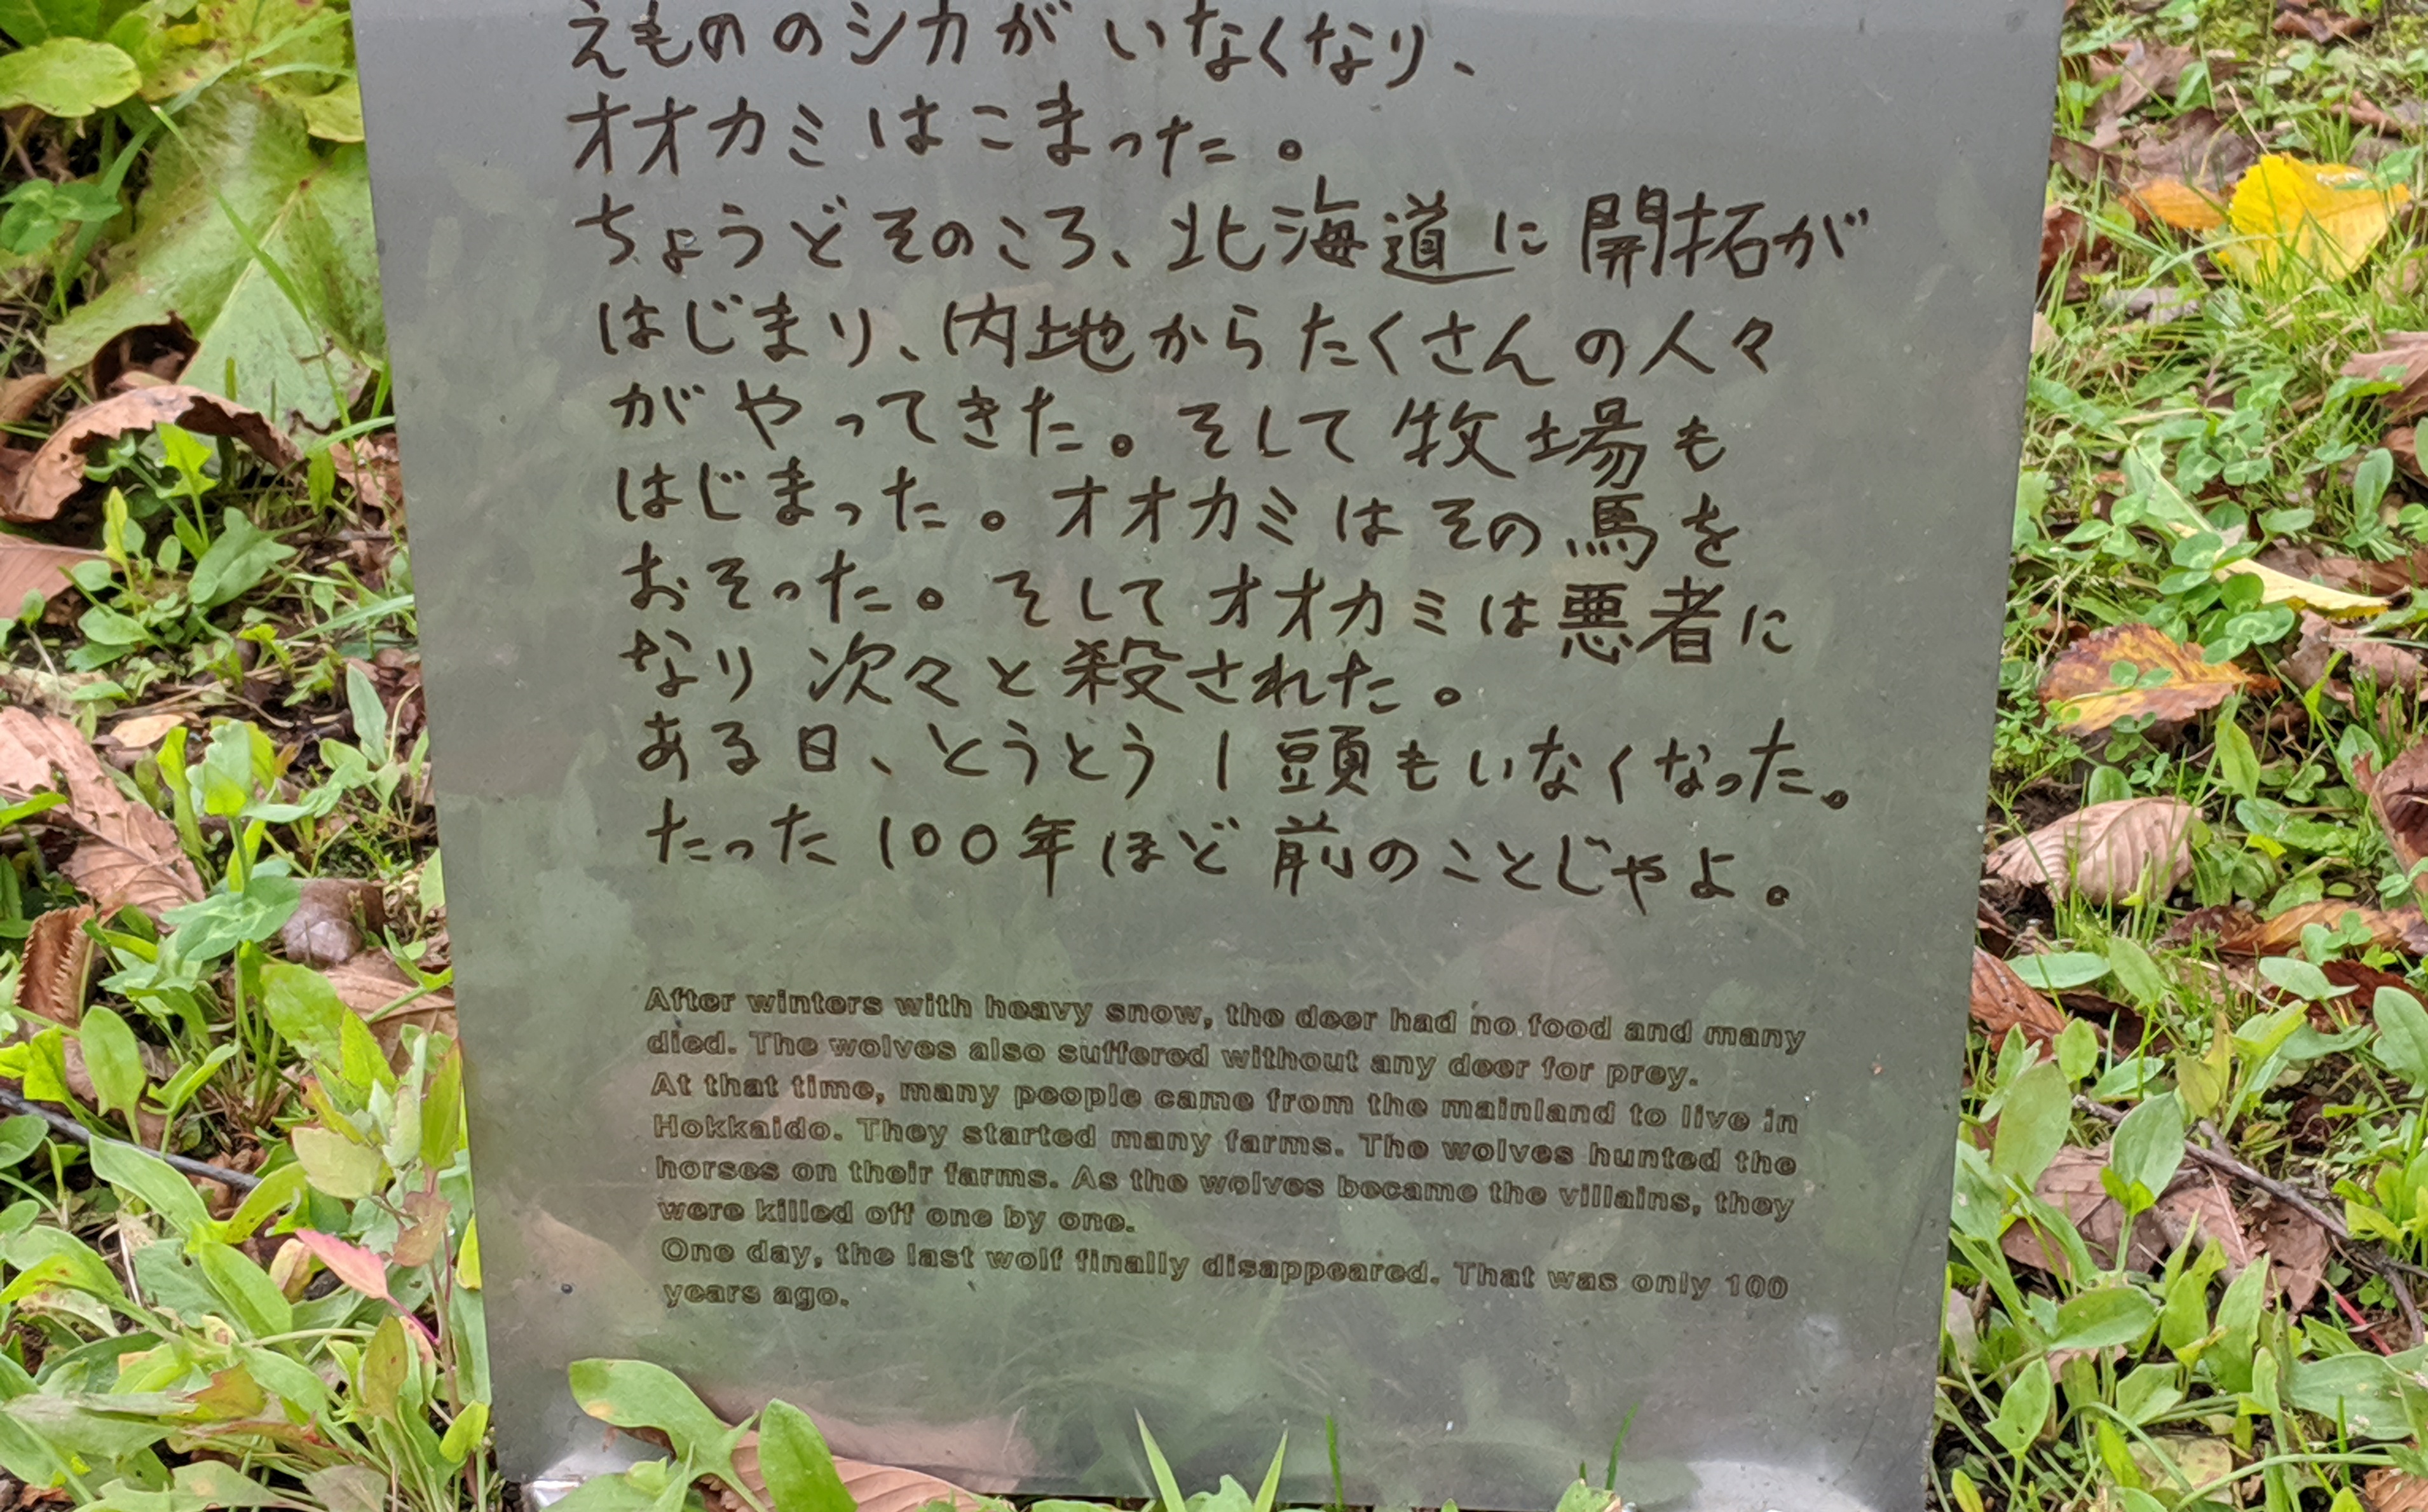 えもののシカがいなくなり、
オオカミはこまった。
ちょうどそのころ、北海道に開拓が
はじまり、内地からたくさんの人々
がやってきた。そして牧場も
はじまった。オオカミはその馬を
おそった。そしてオオカミは悪者に
なり次々と殺された。
ある日、とうとう1頭もいなくなった。
たった100年ほど前のことじゃよ。
After winters with heavy snow, the deer had no food and many
died. The wolves also suffered without any deer for prey.
At that time, many people came from the mainland to live in
Hokkaido. They started many farms. The wolves hunted the
horses on their farms. As the wolves became the villains, they
were killed off one by one.
One day, the last wolf finally disappeared. That was only 100
years ago.